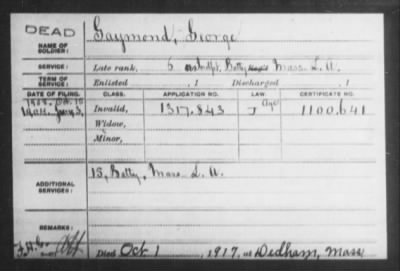 DEAD
NAME OF SOLDIER: Gaymond, George
SERVICE: Late rank, 6 Batty, Mass. L. A.
TERM OF SERVICE: Enlisted , 1 Discharged , 1
DATE OF FILING. CLASS. APPLICATION NO. LAW. CERTIFICATE NO.
Invalid, 1317.843 1100.641
Widow,
Minor,
ADDITIONAL SERVICES: 15, Batty, Mass. L. A.
REMARKS:
Died Oct. 1, 1917, at Dedham, Mass